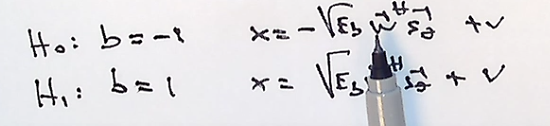 H₀: b = -1 x = -√E_b w^H s_2 + v
H₁: b = 1 x = √E_b ^H s_2 + v